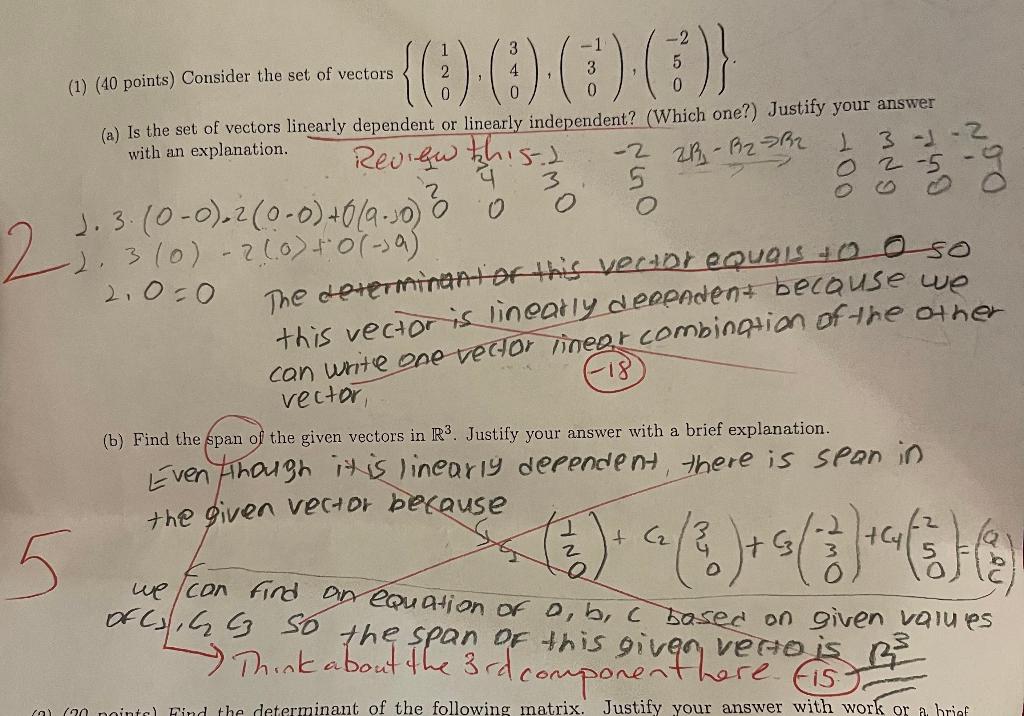 (1) (40 points) Consider the set of vectors { (1 2 0), (3 4 0), (-1 3 0), (-2 5 0) }.
(a) Is the set of vectors linearly dependent or linearly independent? (Which one?) Justify your answer
with an explanation.
Review this
1 3 -1 -2
2 4 3 5
0 0 0 0
2R1 - R2 => R2
1 3 -1 -2
0 2 -5 -9
0 0 0 0
2
1. 3(0-0)-2(0-0)+0(9-10)
1. 3(0) - 2(0) + 0(-19)
1. 0 = 0
The determinant of this vector equals to 0 so
this vector is linearly dependent because we
can write one vector linear combination of the other
vector,
-18
(b) Find the span of the given vectors in ℝ³. Justify your answer with a brief explanation.
Even though it is linearly dependent, there is span in
the given vector because
C1 (1 2 0) + C2 (3 4 0) + C3 (-1 3 0) + C4 (-2 5 0) = (a b c)
5
we can find an equation of a, b, c based on given values
of C1, C2 C3 so the span of this given vecto is R³
Think about the 3rd component here. -15
(2) (20 points) Find the determinant of the following matrix. Justify your answer with work or a brief